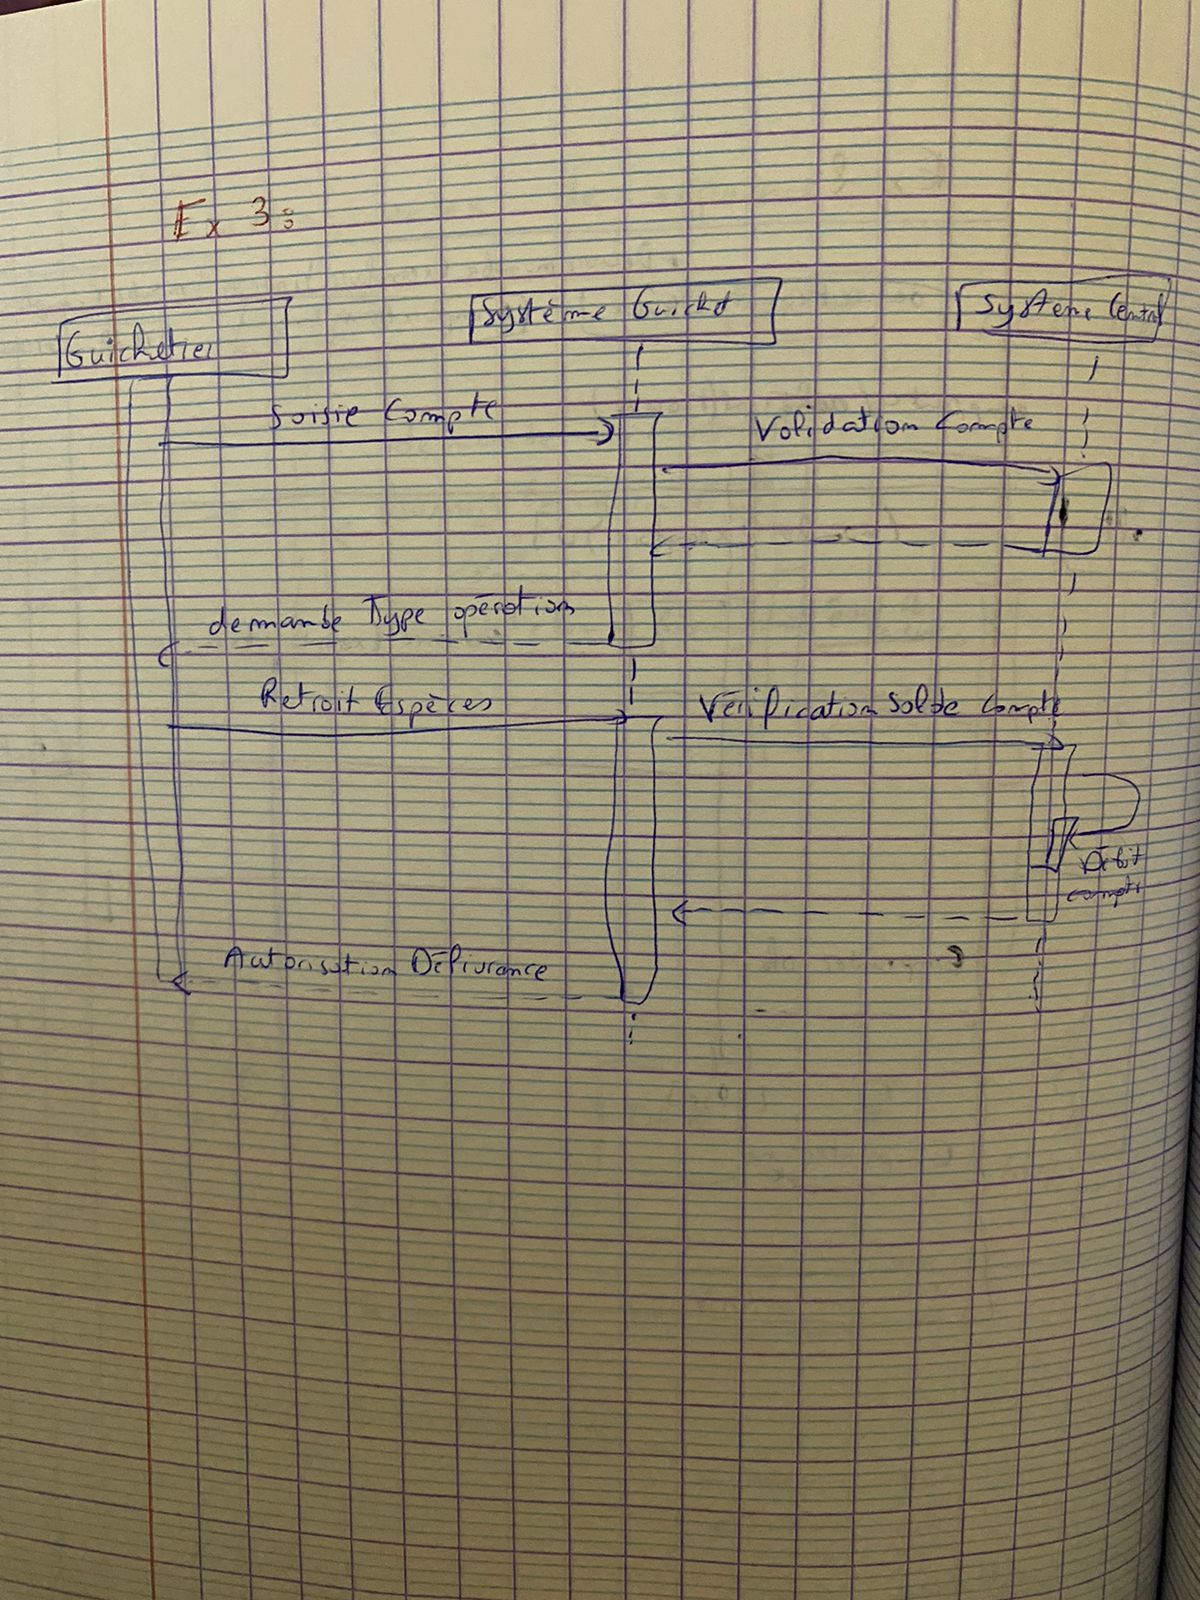 Ex 3:
Guichetier
Système Guichet
Système Central
Saisie Compte
Validation Compte
demande Type opération
Retrait Espèces
Vérification Solde Compte
Débit
compte
Autorisation Délivrance